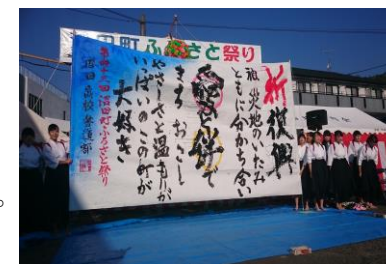 田町ふるさと祭り
祈復興
被災地のいたみ
ともに分かち合い
で
まちおこし
やさしさと温もりが
いっぱいのこの町が
大好き
田町ふるさと祭り
田高校書道部
。